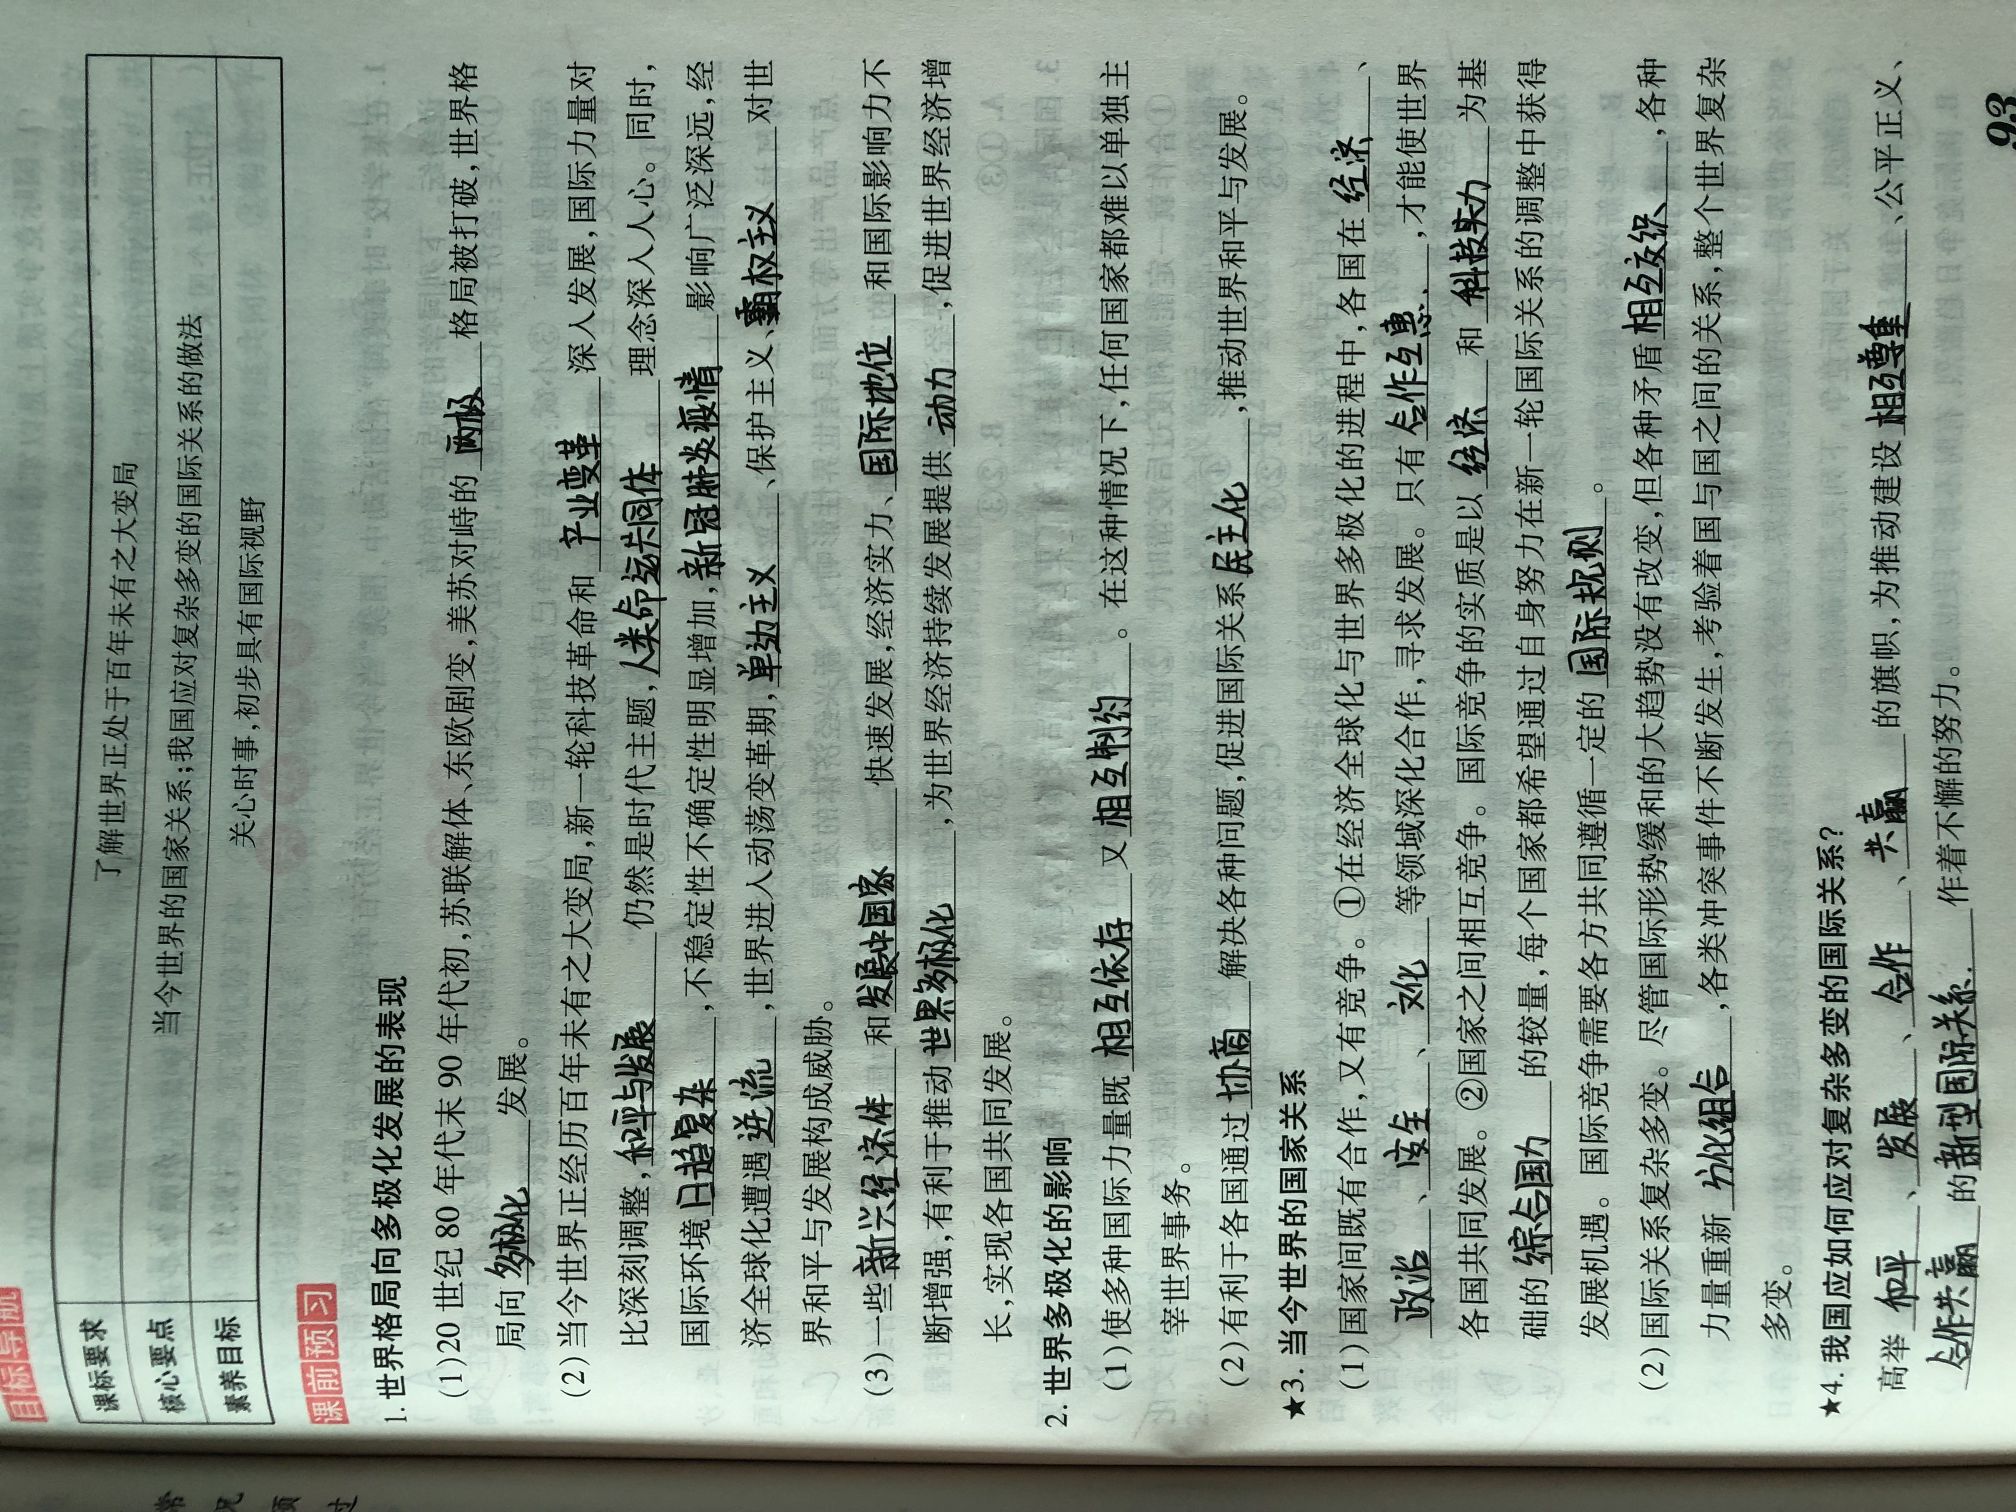 目标导航
课标要求 了解世界正处于百年未有之大变局
核心要点 当今世界的国家关系;我国应对复杂多变的国际关系的做法
素养目标 关心时事,初步具有国际视野
课前预习
1.世界格局向多极化发展的表现
(1)20世纪80年代末90年代初,苏联解体、东欧剧变,美苏对峙的 两极 格局被打破,世界格
局向 多极化 发展。
(2)当今世界正经历百年未有之大变局,新一轮科技革命和 产业变革 深入发展,国际力量对
比深刻调整, 和平与发展 仍然是时代主题, 人类命运共同体 理念深入人心。同时,
国际环境 日趋复杂 ,不稳定性不确定性明显增加, 新冠肺炎疫情 影响广泛深远,经
济全球化遭遇 逆流 ,世界进入动荡变革期, 单边主义 、保护主义、 霸权主义 对世
界和平与发展构成威胁。
(3)一些 新兴经济体 和 发展中国家 快速发展,经济实力、 国际地位 和国际影响力不
断增强,有利于推动 世界多极化 ,为世界经济持续发展提供 动力 ,促进世界经济增
长,实现各国共同发展。
2.世界多极化的影响
(1)使多种国际力量既 相互依存 又 相互制约 。在这种情况下,任何国家都难以单独主
宰世界事务。
(2)有利于各国通过 协商 解决各种问题,促进国际关系 民主化 ,推动世界和平与发展。
★3.当今世界的国家关系
(1)国家间既有合作,又有竞争。①在经济全球化与世界多极化的进程中,各国在 经济 、
政治 、 安全 、 文化 等领域深化合作,寻求发展。只有 合作互惠. ,才能使世界
各国共同发展。②国家之间相互竞争。国际竞争的实质是以 经济 和 科技实力 为基
础的 综合国力 的较量,每个国家都希望通过自身努力在新一轮国际关系的调整中获得
发展机遇。国际竞争需要各方共同遵循一定的 国际规则 。
(2)国际关系复杂多变。尽管国际形势缓和的大趋势没有改变,但各种矛盾 相互交织 ,各种
力量重新 分化组合 ,各类冲突事件不断发生,考验着国与国之间的关系,整个世界复杂
多变。
★4.我国应如何应对复杂多变的国际关系?
高举 和平 、 发展 、 合作 、 共赢 的旗帜,为推动建设 相互尊重 、公平正义、
合作共赢 的 新型国际关系. 作着不懈的努力。
93